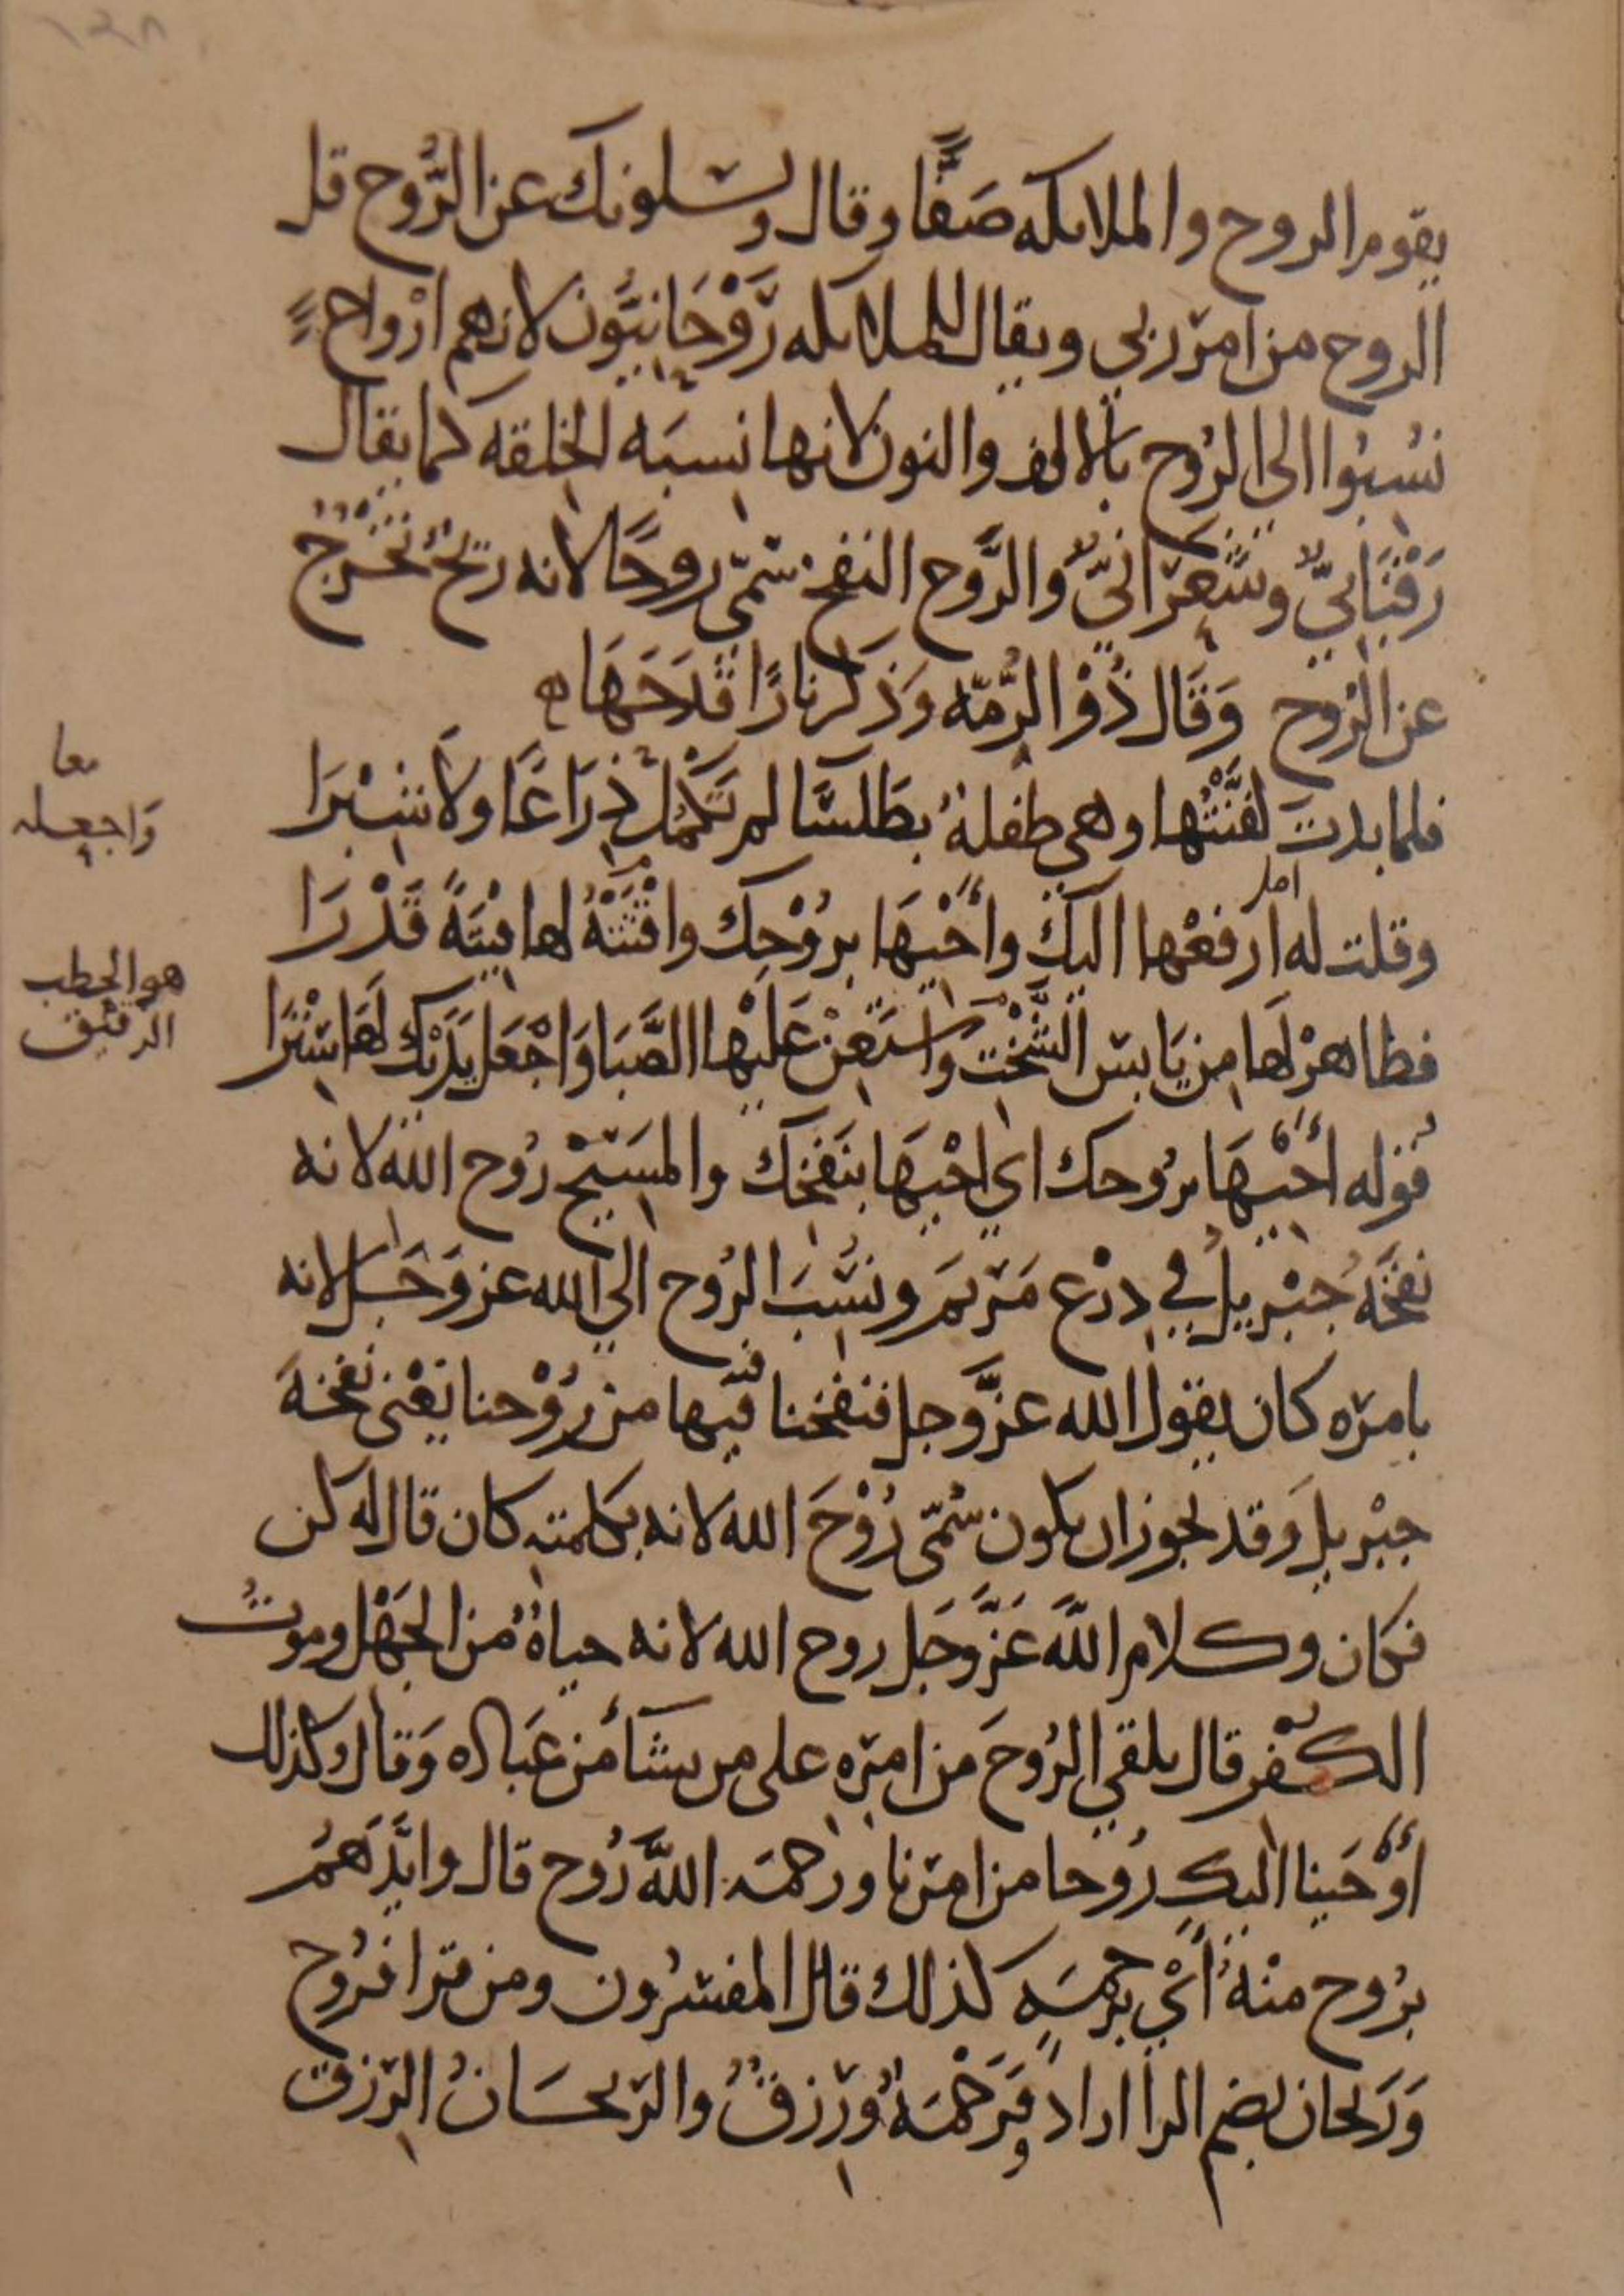 ١٤٨
يقوم الروح والملائكه صَفًّا وقال ويسئلونك عن الرُّوح قل
الروح من امر ربي ويقال للملائكه رُوْحَانيُّون لانهم ارْواحٌ
نُسِبُوا الى الرُوح بالالف والنون لانها نسبَه الخِلقه كما يقال
رَقَبَانيٌّ وشَعْرَانيٌّ والرُّوح النفخ سُمّي رُوحًا لانه ريحٌ تَخرُجُ
عن الرُوح وَقَال ذُوْ الرُّمّه وَذكَر نارًا قَدَحَهَا ه
فلما بدت لفَّنْتُها وهي طفلةٌ بطَلسَا لم تَكْمُل ذِرَاعًا ولا شِبْرَا
وقلت له ارفعْها اليك وأَحْيِهَا برُوْحِك واقْتَتْهُ لها قِيْتَةً قَدْرَا
فظاهرْ لَها من يَابس الشَّخْتِ واستَعِنْ عَليْها الصَّبَا وَاجْعَل يَدَيْك لَهَا سِتْرَا
قوله أَحْيِهَا برُوحك اي احْيِهَا بنَفخِك والمسِيْح رُوح الله لانه
نفخَةُ جبْريلُ في دِرْع مَرْيَم ونُسِبَ الرُوح الي الله عز وَجَل لانه
بامره كان يقول الله عزَّ وجل فنفخنا فيها من رُوْحنا يَعْني نفخَهَ
جبْريل وَقد يجوز ان يكون سُمّي رُوْحَ الله لانه بكلمته كان قال له كن
فكان وكلام اللَّه عَزَّ وَجَل روح الله لانه حياةٌ من الجَهْل وموتُ
الكُفْر قال يلقي الرُوحَ من امره على من يشَأ من عبَاده وَقال وكذلك
أَوْحَينا اليك رُوحا من امرنا ورحمَه اللَّه رُوح قال وايَّدَهُمْ
برُوح منْهُ أَيْ برحمَهٍ كذلك قال المفسّرُون ومن قرا فرُوح
وَرَيحان بضم الرا اراد فَرَحْمَةٌ ورِزقٌ والرَيحَانُ الرِزق
معا
وَاجعله
امل
هو الحطب
الدقيق